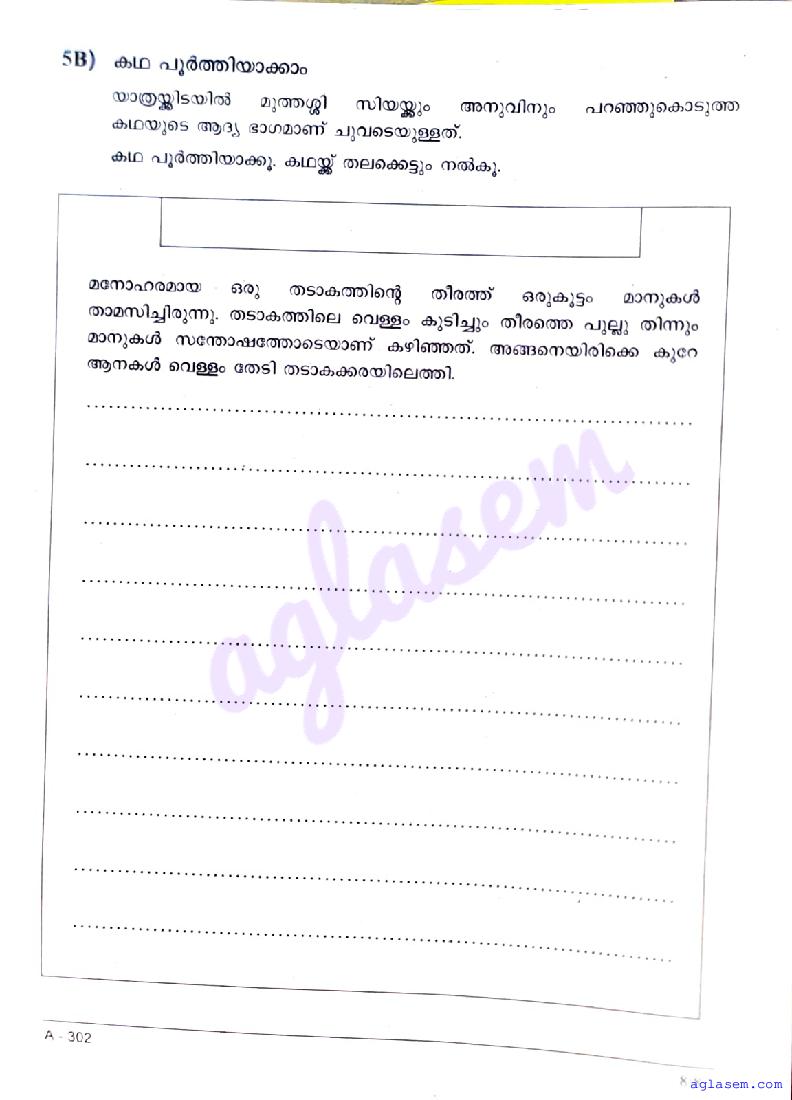 5B) കഥ പൂർത്തിയാക്കാം
യാത്രയ്ക്കിടയിൽ മുത്തശ്ശി സിയയ്ക്കും അനുവിനും പറഞ്ഞുകൊടുത്ത
കഥയുടെ ആദ്യ ഭാഗമാണ് ചുവടെയുള്ളത്.
കഥ പൂർത്തിയാക്കൂ. കഥയ്ക്ക് തലക്കെട്ടും നൽകൂ.
മനോഹരമായ ഒരു തടാകത്തിന്റെ തീരത്ത് ഒരുകൂട്ടം മാനുകൾ
താമസിച്ചിരുന്നു. തടാകത്തിലെ വെള്ളം കുടിച്ചും തീരത്തെ പുല്ലു തിന്നും
മാനുകൾ സന്തോഷത്തോടെയാണ് കഴിഞ്ഞത്. അങ്ങനെയിരിക്കെ കുറേ
ആനകൾ വെള്ളം തേടി തടാകക്കരയിലെത്തി.
aglasem
A - 302
8
aglasem.com